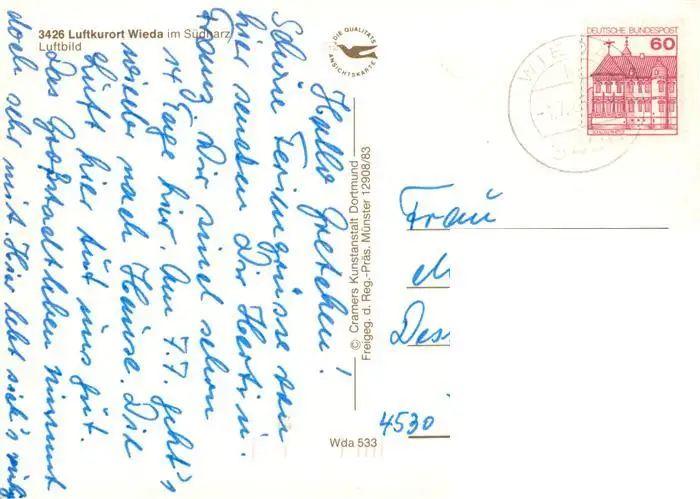 3426 Luftkurort Wieda im Südharz
Luftbild
DIE QUALITÄTS
ANSICHTSKARTE
DEUTSCHE BUNDESPOST
60
Hallo Gretchen!
Schöne Feriengrüsse von
hier senden Dir Herti u.
Franz. Wir sind schon
14 Tage hier. Am 7.7. geht's
wieder nach Hause. Die
Luft hier tut uns gut.
Das Großstadtleben nimmt
doch sehr mit. Hier lebt sich's ruhig
© Cramers Kunstanstalt Dortmund
Freigeg. d. Reg.-Präs. Münster 12908/83
Frau
M
Des
4530
Wda 533